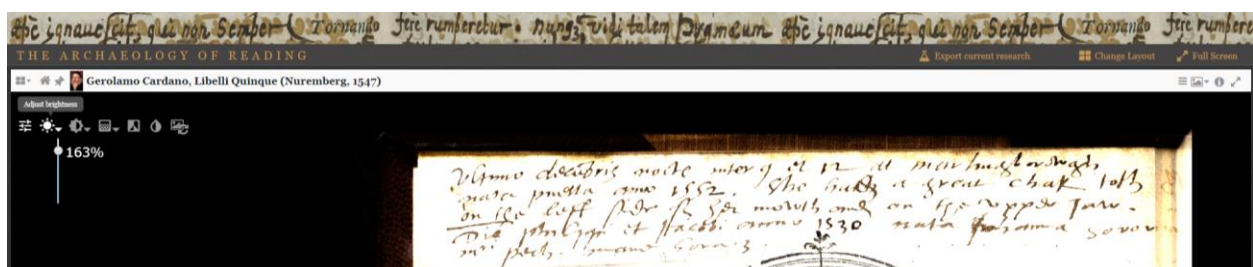 ignaue fuit, qui non Semper Tornando fere rumperetur. nunqȝ vidi talem Pygmæum ignaue fuit, qui non Semper Tornando fere rumpere
THE ARCHAEOLOGY OF READING
Export current research Change Layout Full Screen
Gerolamo Cardano, Libelli Quinque (Nuremberg, 1547)
Adjust brightness
163%
Vltimo decēbris nocte inter 9 et 12 at
nata puella anno 1552. She hath a great chak toth
on the left side of her mowth and on the vpper Jaw.
Die philippi et Jacobi anno 1530 nata Johanna soror
mri pech. mane hora 3.